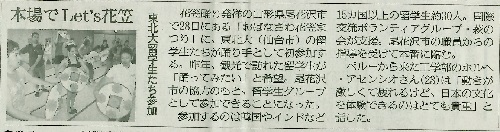 本場でLet's花笠
東北大留学生たち参加
花笠踊り発祥の山形県尾花沢市
で28日にある「おばなざわ花笠ま
つり」に、東北大(仙台市)の留
学生たちが踊り手として初参加す
る。昨年、観光で訪れた留学生が
「踊ってみたい」と希望。尾花沢
市の協力のもと、留学生グループ
として参加できることになった。
参加するのは韓国やインドなど
15カ国以上の留学生約30人。国際
交流ボランティアグループ・萩の
会が支援。尾花沢市の職員からの
指導を受けて本番に臨む。
ペルーから来た工学部のホルヘ
・アセンシオさん(28)は「動きが
激しくて疲れるけど、日本の文化
を体験できるのはとても貴重」と
話した。